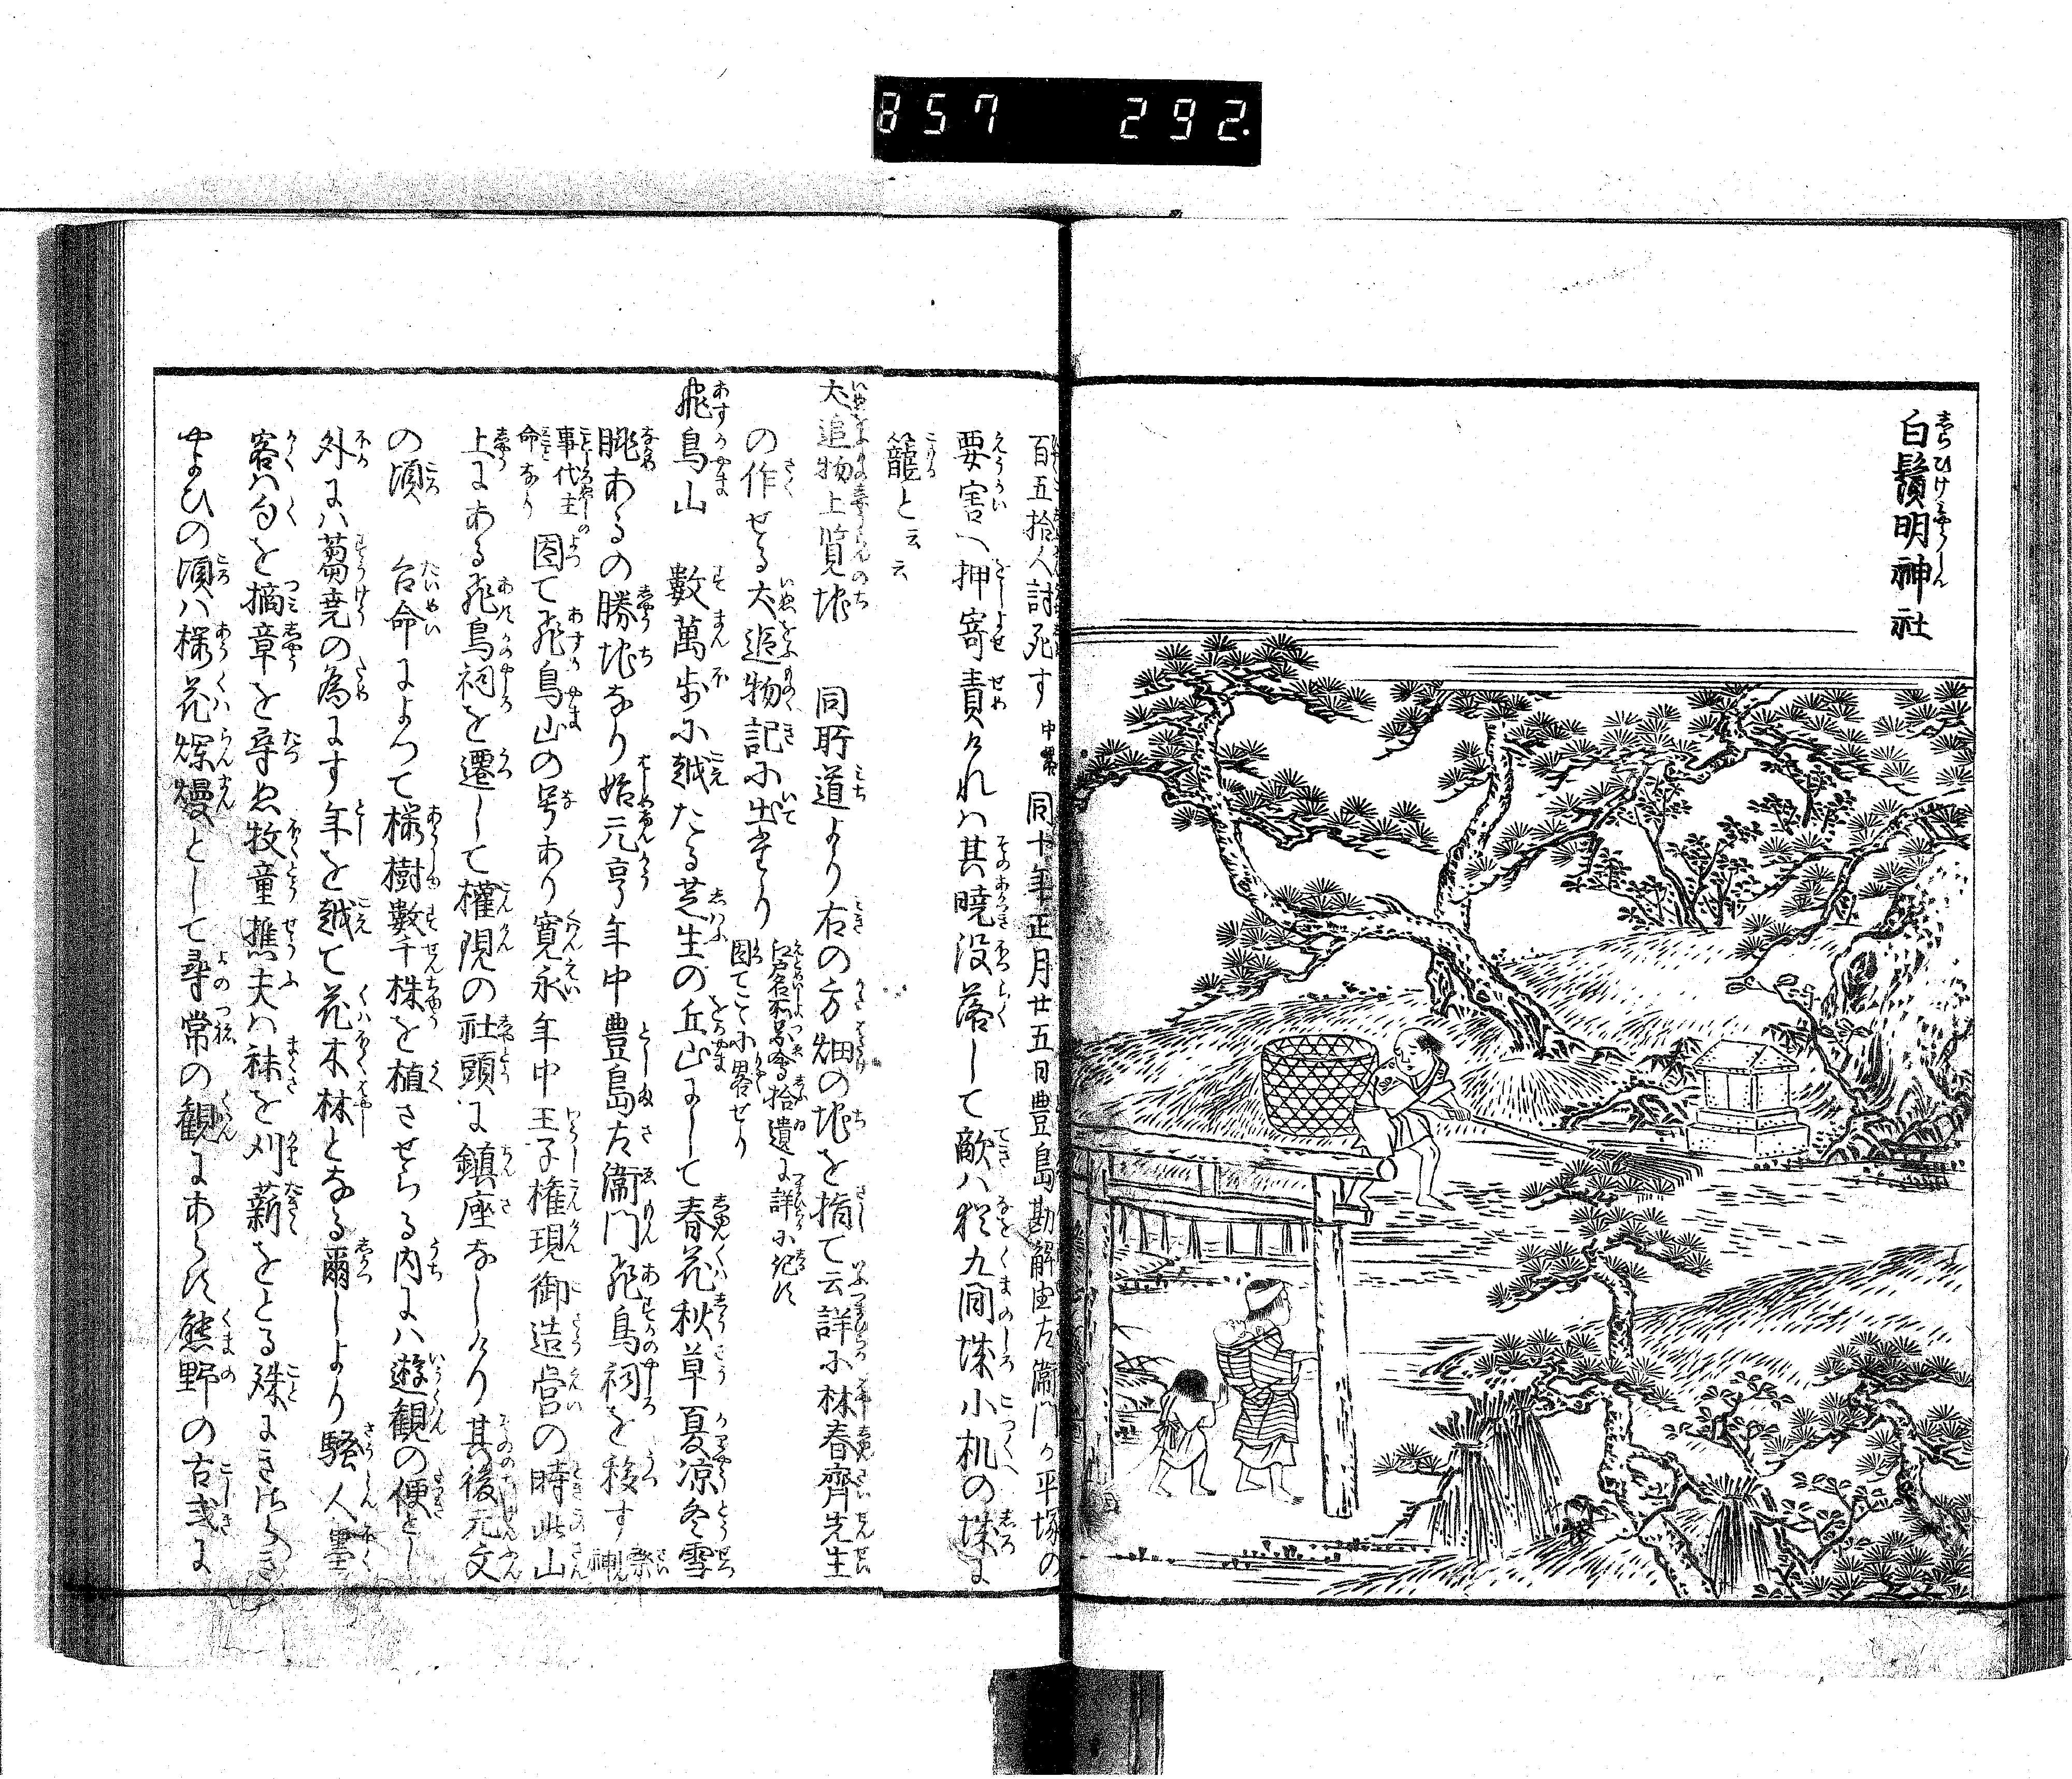 857 292.
白鬚明神社
百五拾人討死す 中畧 同十年正月廿五日豊島勘解由左衞門ヶ平塚の
要害へ押寄責けれハ其暁没落して敵ハ猶九间城小机の城に
籠と云云
犬追物上覧地 同所道より右の方畑の地を指て云詳に林春齊先生
の作せる犬追物記に出たり 江戸名所圖會拾遺に詳に記す
因てこゝに畧せり
飛鳥山 數萬歩に越たる芝生の丘山にして春花秋草夏凉冬雪
眺あるの勝地なり始元亨年中豊島左衞門飛鳥祠を移す 祭神
事代主
命なり 因て飛鳥山の号あり寛永年中王子権現御造営の時此山
上にある飛鳥祠を遷して權現の社頭に鎮座なしけり其後元文
の頃 台命によつて櫻樹數千株を植させらる内にハ遊観の便とし
外にハ蒭尭の為にす年を越て花木林となる爾しより騒人墨
客ハ句を摘章を尋ね牧童樵夫ハ秣を刈薪をとる殊にきさらき
やよひの頃ハ櫻花爛熳として尋常の観にあらす熊野の古式に